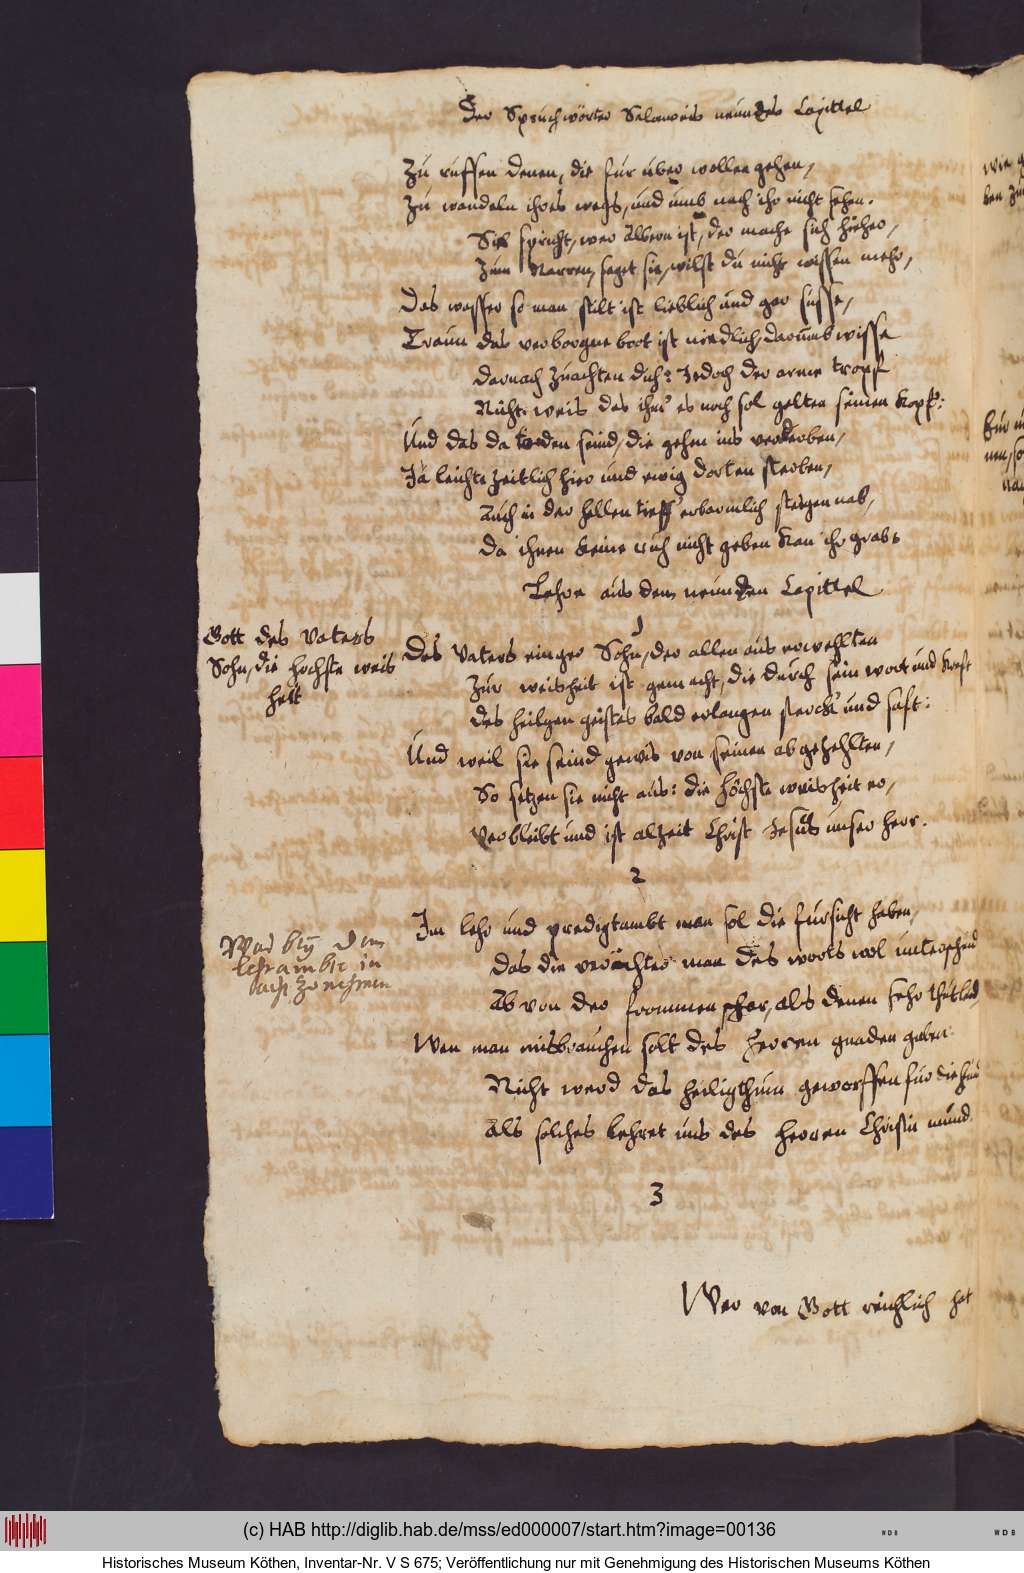 Der Spruchwörter Salomonis neundes Capittel
Zu ruffen denen, die fur uber wollen gehen,
Zu wandeln ihres wegs, und umb nach ihr nicht sehen.
Sie spricht, wer Albern ist, der mache sich hieher,
Zum Narren saget sie, wilst du nicht wissen mehr,
Das wasser so man stilt ist lieblich und gar susse,
Traun das verborgne brot ist niedlich, darumb wisse
darnach zuachten dich: Jedoch der arme tropf
Nicht weis das ihm es noch sol gelten seinen Kopf:
Und das da todten seind, die gehen ins verderben,
Ja leichte zeitlich hier und ewig dorten sterben,
Auch in der hellen tieff' erbarmlich steigen nab,
Da ihnen keine ruh nicht geben kan ihr grab.
Lehre aus dem neunden Capittel
1
Gott des Vaters
Sohn, die hochste weis
heit
Des Vaters einger Sohn, der allen auserwehlten
Zur weisheit ist gemacht, die durch sein wort und kraft
des heilgen geistes bald erlangen sterck' und saft:
Und weil sie seind gewis von seinen abgezehlten,
So setzen sie nicht aus: die höchste weisheit er,
Verbleibt und ist alzeit Christ Jesus unser herr.
2
Was bey dem
lehrambt in
acht zu nehmen
Im lehr und predigtambt man sol die fursicht haben,
das die verächter man des worts wol unterscheid
Ab von der frommen schar, als denen sehr
Wen man misbrauchen solt des herren gnaden gaben
Nicht werd das heiligthum geworffen fur die hund
als solches lehret uns des herren Christi mund.
3
Wer von Gott reichlich hat
(c) HAB http://diglib.hab.de/mss/ed000007/start.htm?image=00136
WDB
WDB
Historisches Museum Köthen, Inventar-Nr. V S 675; Veröffentlichung nur mit Genehmigung des Historischen Museums Köthen